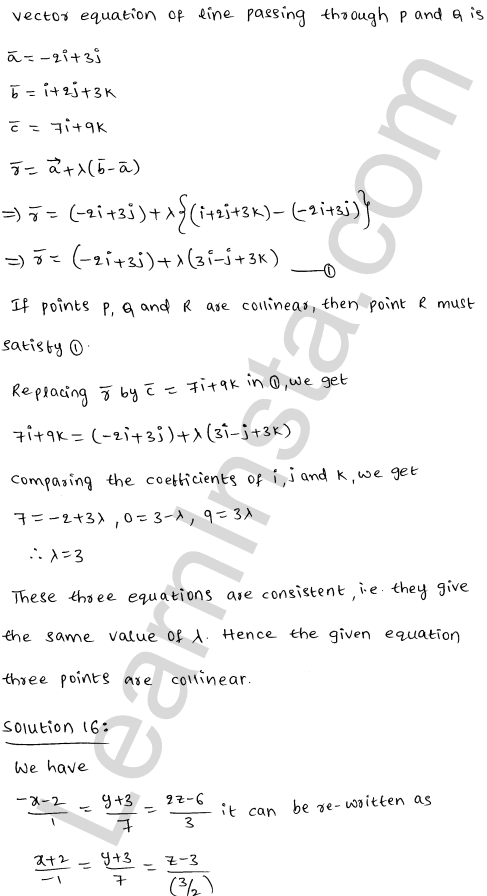 vector equation of line passing through P and Q is
a̅ = -2i+3j
b̅ = i+2j+3k
c̅ = 7i+9k
r̅ = a⃗+λ(b̅-a̅)
⇒ r̅ = (-2i+3j)+λ{(i+2j+3k)-(-2i+3j)}
⇒ r̅ = (-2i+3j)+λ(3i-j+3k) — ①
If points P, Q and R are collinear, then point R must
satisfy ①.
Replacing r̅ by c̅ = 7i+9k in ①, we get
7i+9k = (-2i+3j)+λ(3i-j+3k)
comparing the coefficients of i, j and k, we get
7=-2+3λ, 0=3-λ, 9=3λ
∴ λ=3
These three equations are consistent, i.e. they give
the same value of λ. Hence the given equation
three points are collinear.
Solution 16:
We have
(-x-2)/1 = (y+3)/7 = (2z-6)/3 it can be re-written as
(x+2)/-1 = (y+3)/7 = (z-3)/(3/2)
LearnInsta.com